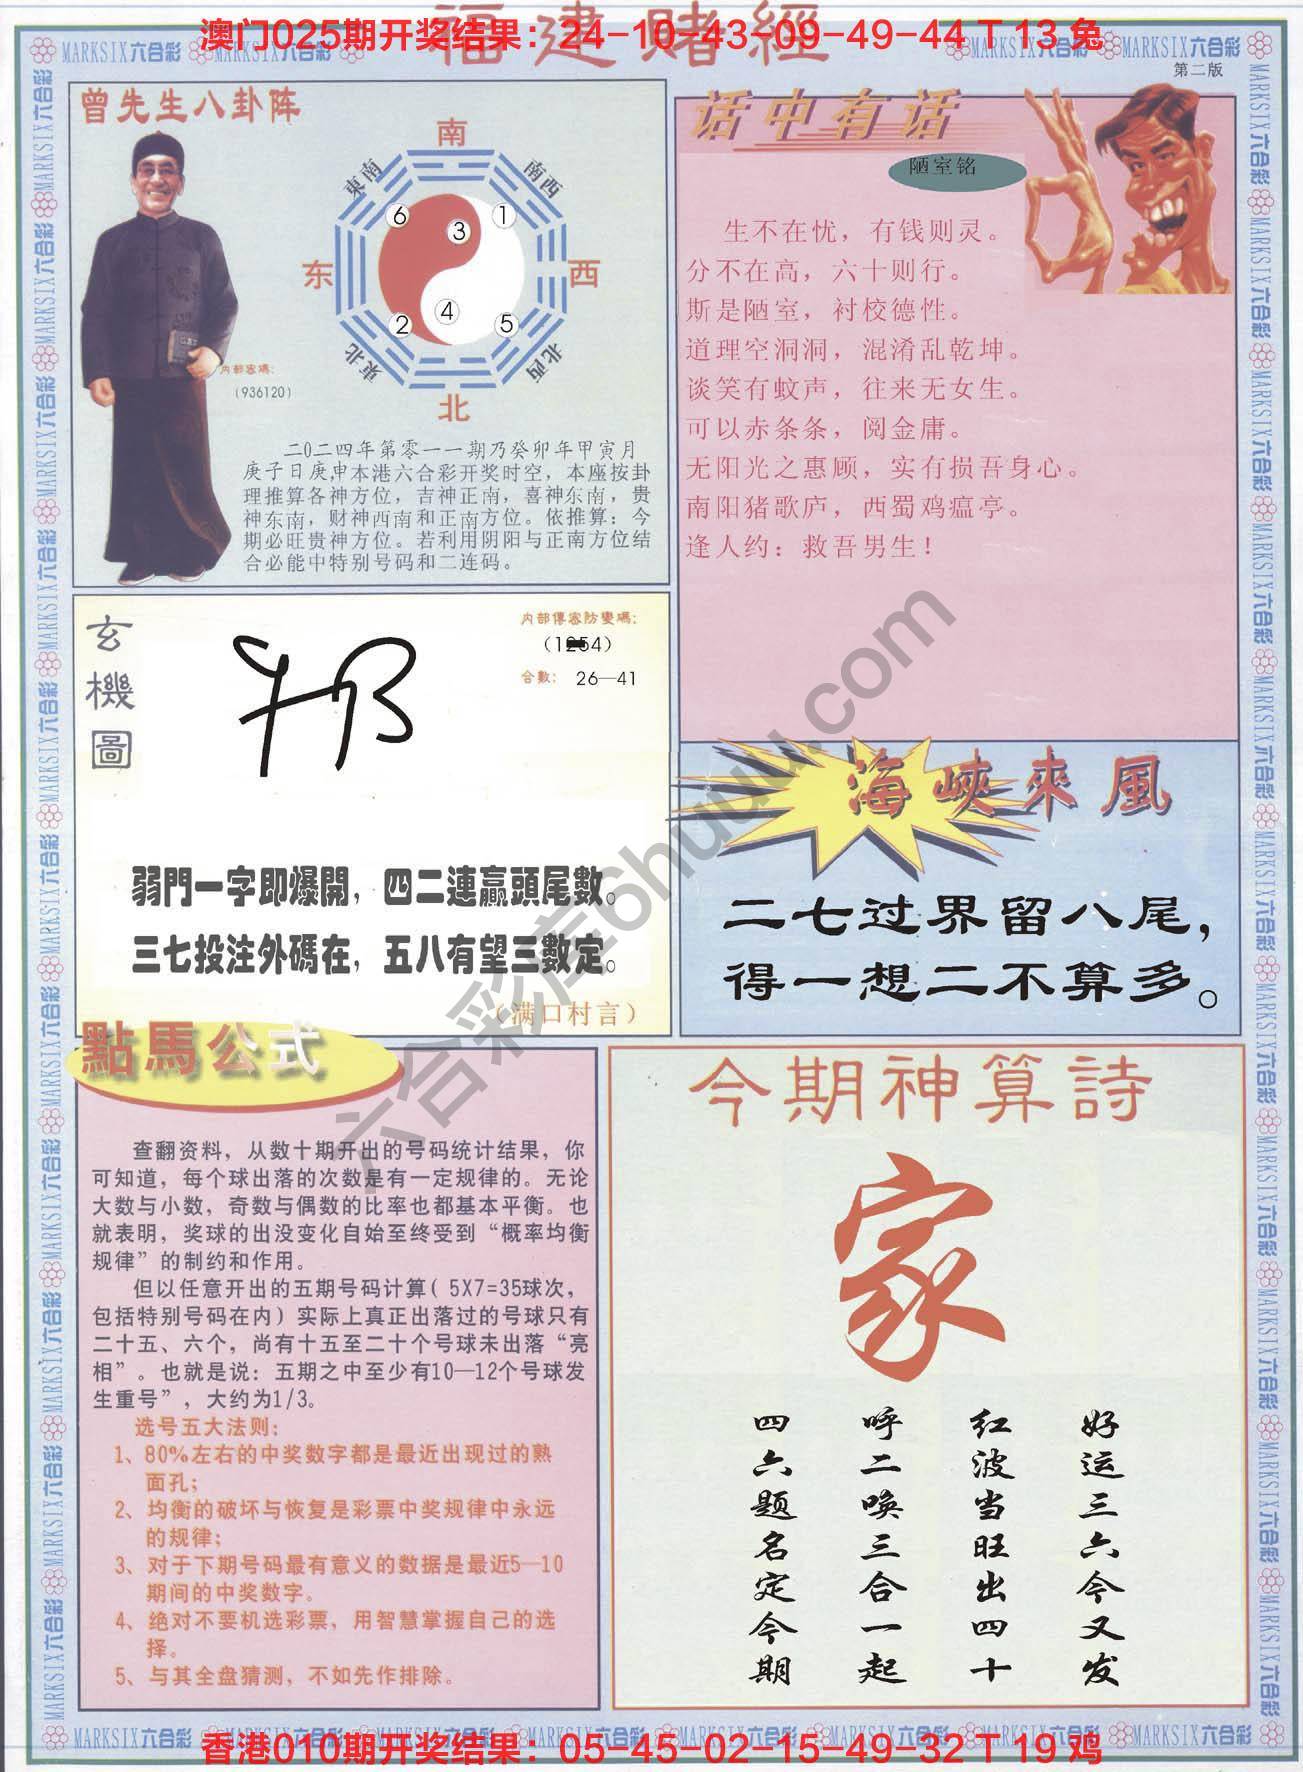 福建賭經
澳门025期开奖结果：24-10-43-09-49-44 T 13 兔
MARKSIX六合彩
第二版
曾先生八卦阵
南
東南
南西
6
3
1
东
西
4
2
5
東北
北西
北
内部密碼:
(936120)
二0二四年第零一一期乃癸卯年甲寅月
庚子日庚申本港六合彩开奖时空，本座按卦
理推算各神方位，吉神正南，喜神东南，贵
神东南，财神西南和正南方位。依推算：今
期必旺贵神方位。若利用阴阳与正南方位结
合必能中特别号码和二连码。
话中有话
陋室铭
生不在忧，有钱则灵。
分不在高，六十则行。
斯是陋室，衬校德性。
道理空洞洞，混淆乱乾坤。
谈笑有蚊声，往来无女生。
可以赤条条，阅金庸。
无阳光之惠顾，实有损吾身心。
南阳猪歌庐，西蜀鸡瘟亭。
逢人约：救吾男生！
玄機圖
内部傳密防變碼:
合數: 26—41
弱門一字即爆開，四二連贏頭尾數。
三七投注外碼在，五八有望三數定。
（满口村言）
海峽來風
二七过界留八尾，
得一想二不算多。
點馬公式
查翻资料，从数十期开出的号码统计结果，你
可知道，每个球出落的次数是有一定规律的。无论
大数与小数，奇数与偶数的比率也都基本平衡。也
就表明，奖球的出没变化自始至终受到“概率均衡
规律”的制约和作用。
但以任意开出的五期号码计算( 5X7=35球次，
包括特别号码在内）实际上真正出落过的号球只有
二十五、六个，尚有十五至二十个号球未出落“亮
相”。也就是说：五期之中至少有10—12个号球发
生重号”，大约为1/3。
选号五大法则：
1、80%左右的中奖数字都是最近出现过的熟
面孔；
2、均衡的破坏与恢复是彩票中奖规律中永远
的规律；
3、对于下期号码最有意义的数据是最近5—10
期间的中奖数字。
4、绝对不要机选彩票，用智慧掌握自己的选
择。
5、与其全盘猜测，不如先作排除。
今期神算詩
家
好运三六今又发
红波当旺出四十
呼二唤三合一起
四六题名定今期
六合彩库6huuu.com
香港010期开奖结果：05-45-02-15-49-32 T 19 鸡